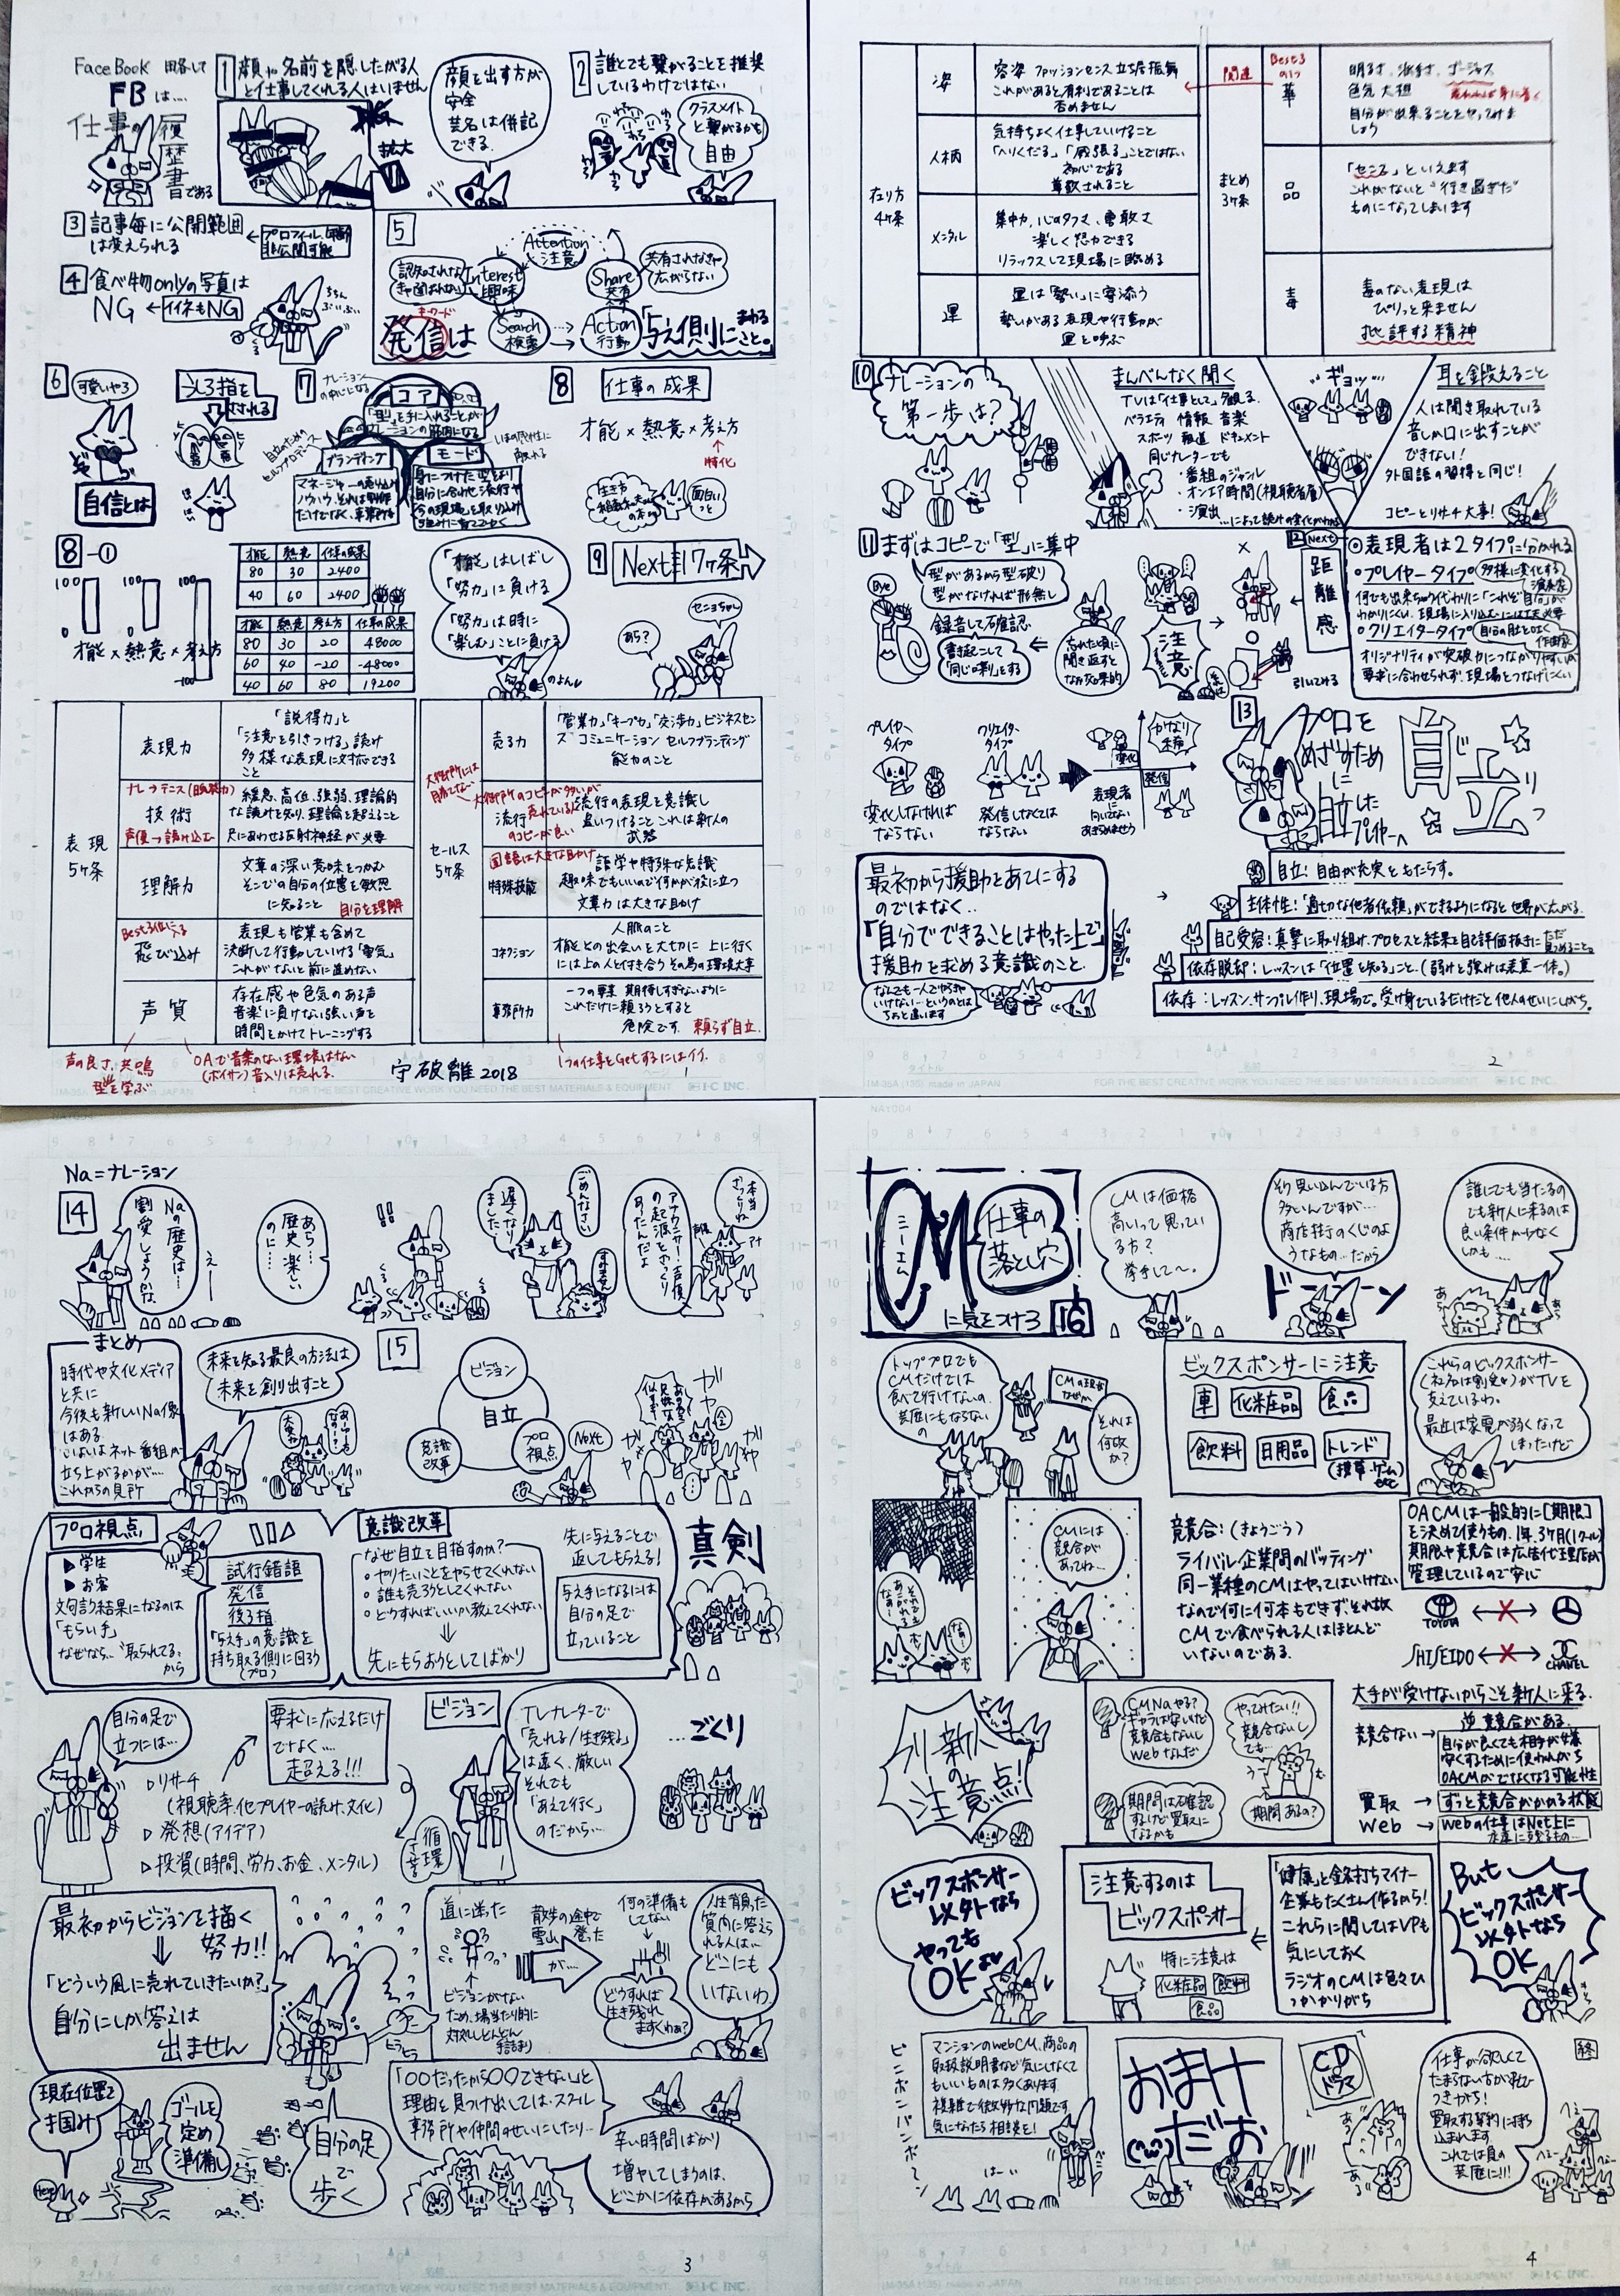 FaceBook
FBは....
仕事の履歴書である
1 顔や名前を隠したがる人
と仕事してくれる人はいません
拡大
顔を出す方が
安全
芸名は併記
できる.
2 誰とでも繋がることを推奨
しているわけではない
クラスメイト
と繋がるかも
自由
3 記事毎に公開範囲
は変えられる
4 食べ物onlyの写真は
NG ← イイネもNG
5
Attention
注意
Interest
興味
Search
検索
Action
行動
Share
共有
共有されなきゃ
広がらない
キーワード
発信は
「与え側」にまわる
こと。
6 可愛いやろ
うしろ指を
さされる
自信とは
7 ナレーション
の中心になる
コア
「型」を手に入れることが
ナレーションの筋肉になる
ブランディング
モード
8 仕事の成果
才能×熱意×考え方
↑
特化
面白い
っと
8-①
100 100 100
0 0 -100
才能×熱意×考え方
才能 熱意 仕事の成果
80 30 2400
40 60 2400
才能 熱意 考え方 仕事の成果
80 30 20 48000
60 40 -20 -48000
40 60 80 19200
「才能」はしばし
「努力」に負ける
「努力」は時に
「楽しむ」ことに負ける
のよん
9 Next 17ヶ条
あら?
センヨちゃん
表現
5ヶ条
表現力
「説得力」と
「注意を引きつける」読み
多様な表現に対応できる
こと
技術
緩急、高位、強弱、理論的
な読みを知り、理論を超えること
尺にあわせる反射神経が必要
声優→読み込む
理解力
文章の深い意味をつかむ
そこでの自分の位置を敏感
に知ること
自分を理解
Best3位に入る
飛び込み
表現も営業も含めて
決断して行動していける「勇気」
これがないと前に進めない
声質
存在感や色気のある声
音楽に負けない強い声を
時間をかけてトレーニングする
声の良さ、共鳴
型を学ぶ
OAで音楽のない環境はない
(ボイサン)音入りは売れる.
セールス
5ヶ条
売る力
「営業力」「キープ力」「交渉力」ビジネスセン
ス コミュニケーション セルフブランディング
能力のこと
流行
流行の表現を意識し
追いつけること これは新人の
武器
大御所のコピーが多いが
売れている人
のコピーが良い
国語は大きな助け
特殊技能
語学や特殊な知識
趣味でもいいので何かが役に立つ
文章力は大きな助け
コネクション
人脈のこと
才能との出会いを大切に 上に行く
には上の人と付き合う その為の環境大事
事務所力
一つの要素 期待しすぎないように
これだけに頼ろうとすると
危険です. 頼らず自立.
1つの仕事をGetするにはイイ.
守破離2018
1
在り方
4ヶ条
姿
容姿 ファッションセンス 立ち居振舞
これがあると有利であることは
否めません
人柄
気持ちよく仕事していけること
「へりくだる」「威張る」ことではない
初心である
尊敬されること
メンタル
集中力、心のタフさ、勇敢さ
楽しく努力できる
リラックスして現場に臨める
運
運は「勢い」に寄添う
勢いがある表現や行動が
運を呼ぶ
関連
まとめ
3ヶ条
Best3
の1つ
華
明るさ、派手さ、ゴージャス
色気 大胆
自分が出来ることをやってみま
しょう
品
「センス」といえます
これがないと"行き過ぎた"
ものになってしまいます
毒
毒のない表現は
ぴりっと来ません
批評する精神
10 ナレーションの
第一歩は?
まんべんなく聞く
TVは「仕事として」観る.
バラエティ 情報 音楽
スポーツ 報道 ドキュメント
同じナレーターでも
・番組のジャンル
・オンエア時間(視聴者層)
・演出
...によって読みの変化がわかる
ギョッ...
耳を鍛えること
人は聞き取れている
音しか口に出すことが
できない!
外国語の習得と同じ!
コピーとリサーチ大事!
11 まずはコピーで「型」に集中
Bye
型があるから型破り
型がなければ形無し
録音して確認
書き起こして
「同じ喋り」をする
忘れた頃に
聞き返すと
なお効果的
注意
12 Next
距離感
◎表現者は2タイプに分かれる
・プレイヤータイプ 多様に変化する
演奏家
・クリエイタータイプ
作曲家
オリジナリティが突破力につながりやすいが
要求に合わせられず、現場をつなげにくい
引いてみる
プレイヤー
タイプ
変化しなければ
ならない
クリエイター
タイプ
発信しなくては
ならない
変化
発信
かなり
稀
表現者に
向いてない
あきらめましょう
13 プロを
めざすため
に
自立した
プレイヤーへ
自立
最初から援助をあてにする
のではなく..
「自分でできることはやった上で」
援助を求める意識のこと.
なんでも一人でやらなきゃ
いけないーというのとは
ちょっと違います
自立：自由が充実をもたらす。
主体性：「適切な他者依頼」ができるようになると世界が広がる.
自己受容：真摯に取り組み、プロセスと結果を自己評価抜きにただ
見つめること。
依存脱却：レッスンは「位置を知る」こと。(弱みと強みは表裏一体。)
依存：レッスン、サンプル作り、現場で。受け身でいるだけだと他人のせいにしがち。
2
Na=ナレーション
14
Naの歴史は...
割愛しようかな
えー
あら...
歴史、楽しい
のに....
!!
ごめんなさい
遅くなり
ました...
アナウンサー、声優
の起源をざっくり
あーたんだよ
本当
ざっくりね
まとめ
時代や文化メディア
と共に
今後も新しいNa像
はある
いよいよネット番組が
立ち上がるかが...
これからの見所
未来を知る最良の方法は
未来を創り出すこと
15
ビジョン
自立
意識
改革
プロ
視点
Next
ガヤ
プロ視点
▶学生
▶お客
文句言う結果になるのは
「もらい手」
なぜなら.."取られてる"
から
試行錯誤
発信
後ろ指
「与え手」の意識を
持ち取る側に回ろう
(プロ)
意識改革
なぜ自立を目指すのか?
・やりたいことをやらせてくれない
・誰も売ろうとしてくれない
・どうすればいいか教えてくれない
⇓
先にもらおうとしてばかり
先に与えることで
返してもらえる!
与え手になるには
自分の足で
立っていること
真剣
自分の足で
立つには...
▷リサーチ
(視聴率、他プレイヤーの読み、文化)
▷発想(アイデア)
▷投資(時間、労力、お金、メンタル)
要求に応えるだけ
でなく....
超える!!!
循環
させる
ビジョン
TLナレーターで
「売れる/生き残る」
は遠く、厳しい
それでも
「あえて行く」
のだから...
...ごくり
最初からビジョンを描く
努力!!
⇓
「どういう風に売れていきたいか?」
自分にしか答えは
出ません
ヒラヒラ
道に迷った
ビジョンがない
ため、場当たり的に
対処しどんどん
手詰まり
散歩の途中で
雪山へ登った
が...
何の準備も
してない
どうすれば
生き残れ
ますくわぁ?
人生背負った
質問に答えら
れる人は...
どこにも
いないわ
現在位置を
掴み
Here
ゴールを
定め
準備し
自分の足
で
歩く
「〇〇だったから〇〇できない」と
理由を見つけ出しては...スクール
事務所や仲間のせいにしたり...
辛い時間ばかり
増やしてしまうのは、
どこかに依存があるから
3
CM シーエム
仕事の
落とし穴
に気をつけろ
16
CMは価格
高いって思ってい
る方?
挙手して〜。
そう思い込んでいる方
多いんですが....
商店街のくじのよ
うなもの...だから
ドーーーン
誰にでも当たるの
でも新人に来るのは
良い条件が少なく
しかも....
トッププロでも
CMだけでは
食べて行けないの.
芸歴にもならない
の
CMの現実
なぜか
それは
何故
か?
ビックスポンサーに注意
車 化粧品 食品
飲料 日用品 トレンド
(携帯・ゲーム)
etc
これらのビックスポンサー
(社名は割愛♡)がTVを
支えているわ。
最近は家電が弱くなって
しまったけど
CMには
競合が
あってね...
競合：(きょうごう)
ライバル企業間のバッティング
同一業種のCMはやってはいけない
なので何に何本もできず、それ故
CMで食べられる人はほとんど
いないのである.
OACMは一般的に[期限]
を決めて使うもの.1年.3ヶ月(1クール)
期限や競合は広告代理店が
管理しているので安心
TOYOTA
SHISEIDO
CHANEL
新人の
注意点!
CMNaやる?
ギャラは安いけど
競合もないし
Webなんだ
やってみたい!!
競合ないし
でも...
期間は確認
するけど買取に
なるかも
期間あるの?
大手が受けないからこそ新人に来る.
競合ない→
逆競合がある.
自分が良くても相手が嫌
安くするために使われがち
OACMがでなくなる可能性
買取→ずっと競合がかかる状態
Web→Webの仕事はNet上に
永遠に残るもの...
ビックスポンサー
以外なら
やっても
OKよ
注意するのは
ビックスポンサー
特に注意は
化粧品 飲料
食品
「健康」と銘打ちマイナー
企業もたくさん作るから!
これらに関してはVPも
気にしておく
ラジオのCMは色々ひ
っかかりがち
But
ビックスポンサー
以外なら
OK
ピンポンパンポ〜ン
マンションのwebCM、商品の
取扱説明書など気にしなくて
もいいものは多くあります
複雑で微妙な問題です
気になったら相談を!
はーい
おまけ
だお
CD
ドラマ
仕事が欲しくて
たまらない方が飛び
つきがち!
買取する契約に持ち
込まれます
これでは負の
芸歴に!!!
終
4
タイトル
FOR THE BEST CREATIVE WORK YOU NEED THE BEST MATERIALS & EQUIPMENT.
I·C INC.